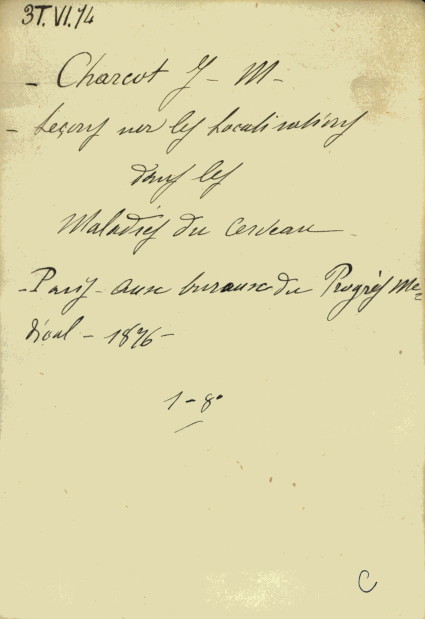 3T.VI.74
- Charcot J - M -
- Leçons sur les Localisations
dans les
Maladies du cerveau
- Paris - aux bureaux du Progrès Me-
dical - 1876 -
1 - 8°
C